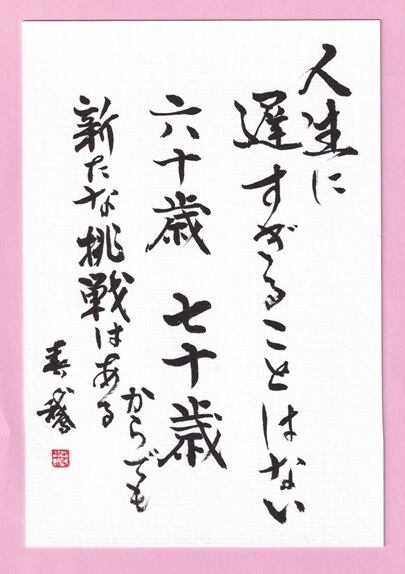 人生に
遅すぎることはない
六十歳 七十歳
からでも
新たな挑戦はある
春鵞